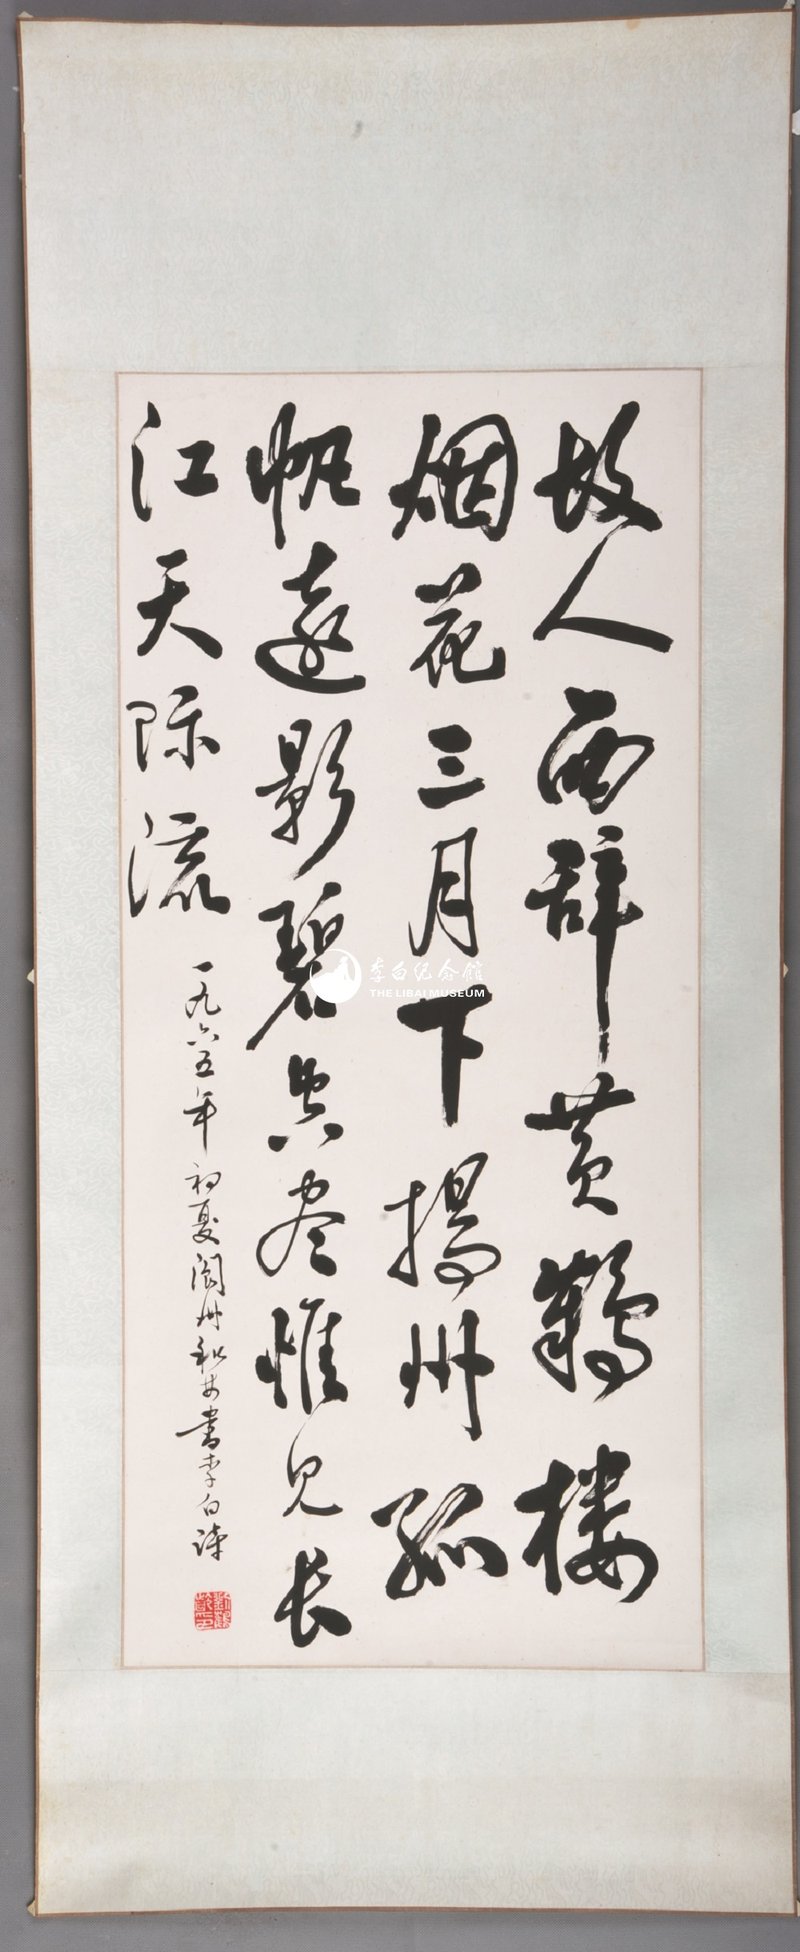 故人西辞黄鹤楼
烟花三月下揚州孤
帆遠影碧空尽惟见长
江天际流
一九六五年初夏阆州 书李白诗
李白纪念馆
THE LIBAI MUSEUM